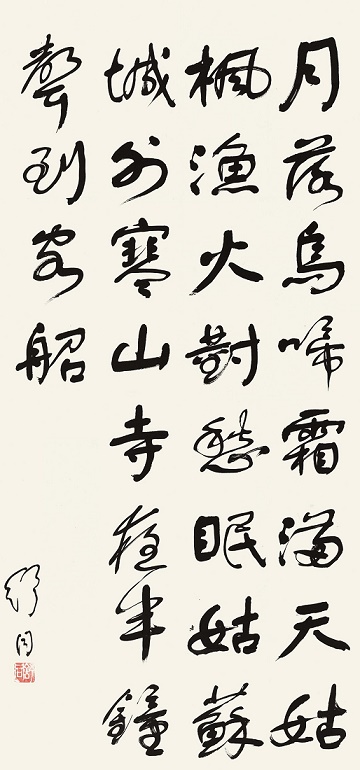 月落烏啼霜滿天姑
楓漁火對愁眠姑蘇
城外寒山寺夜半鐘
聲到客船
舒同